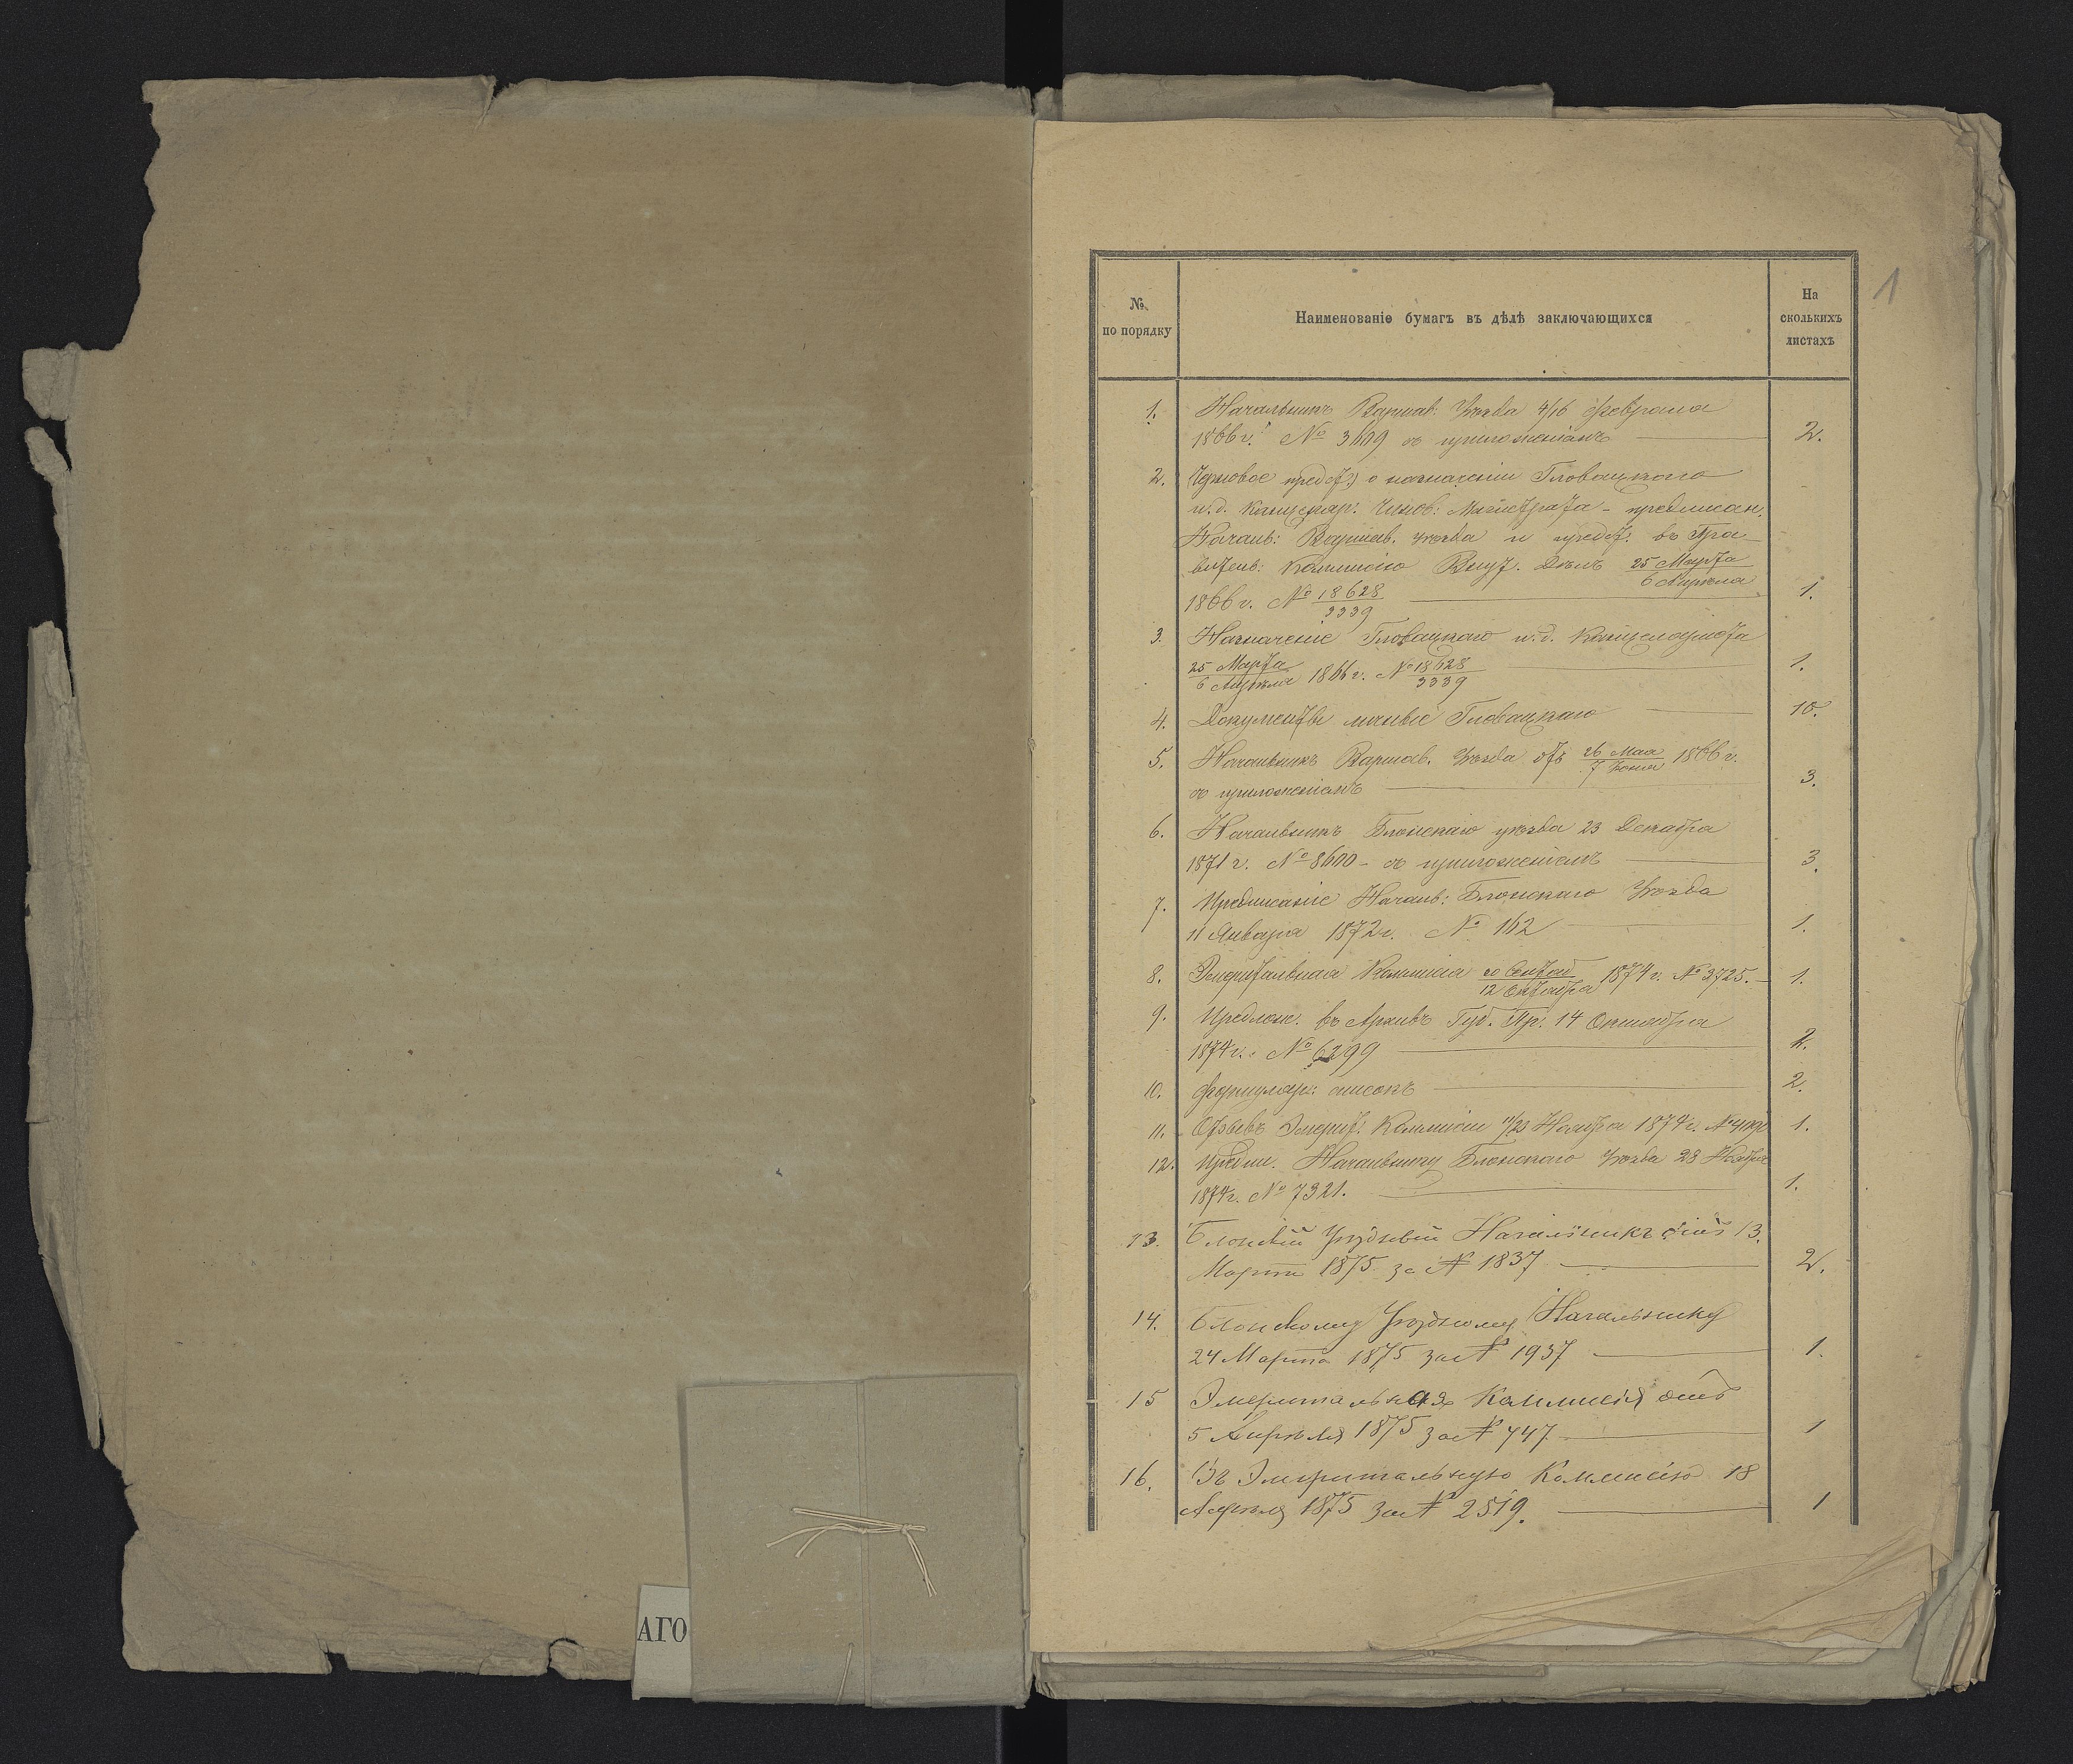 1
№ по порядку
Наименованіе бумагъ въ дѣлѣ заключающихся
На сколькихъ листахъ
1. Начальникъ Варшав: Уѣзда 4/16 февраля
1866 г. № 3609 съ приложеніямъ 2.
2. (Черновое предст.) о назначеніи Гловацкаго
и.д. Канцеляр. Чинов: Магистрата - предписан.
Начал: Варшав. уѣзда и предст. въ Пра-
вител: Коммисію Внут. Дѣлъ 25 Марта / 6 Апрѣля
1866 г. № 18628/3339 1.
3. Назначеніе Гловацкаго и.д. Канцеляриста
25 Марта / 6 Апрѣля 1866 г. № 18628/3339 1.
4. Документы личные Гловацкаго 10.
5. Начальникъ Варшав. Уѣзда отъ 26 Мая / 7 Іюня 1866 г.
съ приложеніемъ 3.
6. Начальникъ Блонскаго уѣзда 23 Декабря
1871 г. № 8600 - съ приложеніемъ 3.
7. Предписаніе Начал: Блонскаго Уѣзда
11 Января 1872 г. № 162 1.
8. Эмеритальная Коммисія 30 Сентяб / 12 Октября 1874 г. № 3725. - 1.
9. Предлож. въ Архивъ Губ. Пр. 14 Октября
1874 г. № 6299 2.
10. Формуляр: списокъ 2.
11. Отзывъ Эмерит. Коммисіи 11/23 Ноября 1874 г. № 1.
12. Предпи. Начальнику Блонскаго Уѣзда 23 Ноября
1874 г. № 7321. 1.
13. Блонскій Уѣздный Начальникъ отъ 13.
Марта 1875 за № 1837 2.
14. Блонскому Уѣздному Начальнику
24 Марта 1875 за № 1937 1.
15 Эмеритальная Коммисія отъ
5 Апрѣля 1875 за № 747 1
16. Въ Эмеритальную Коммисію 18
Апрѣля 1875 за № 2519. 1
АГО